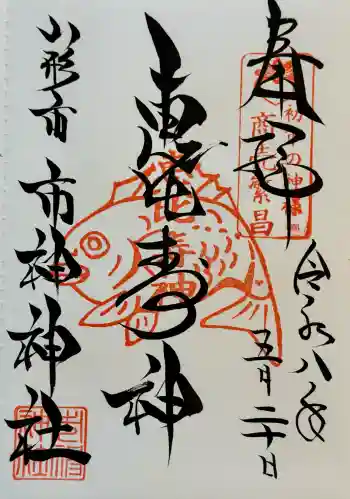 奉拝
初市の神様
商売繁昌
令和八年
五月二十日
恵毘寿神
山形市
市神神社